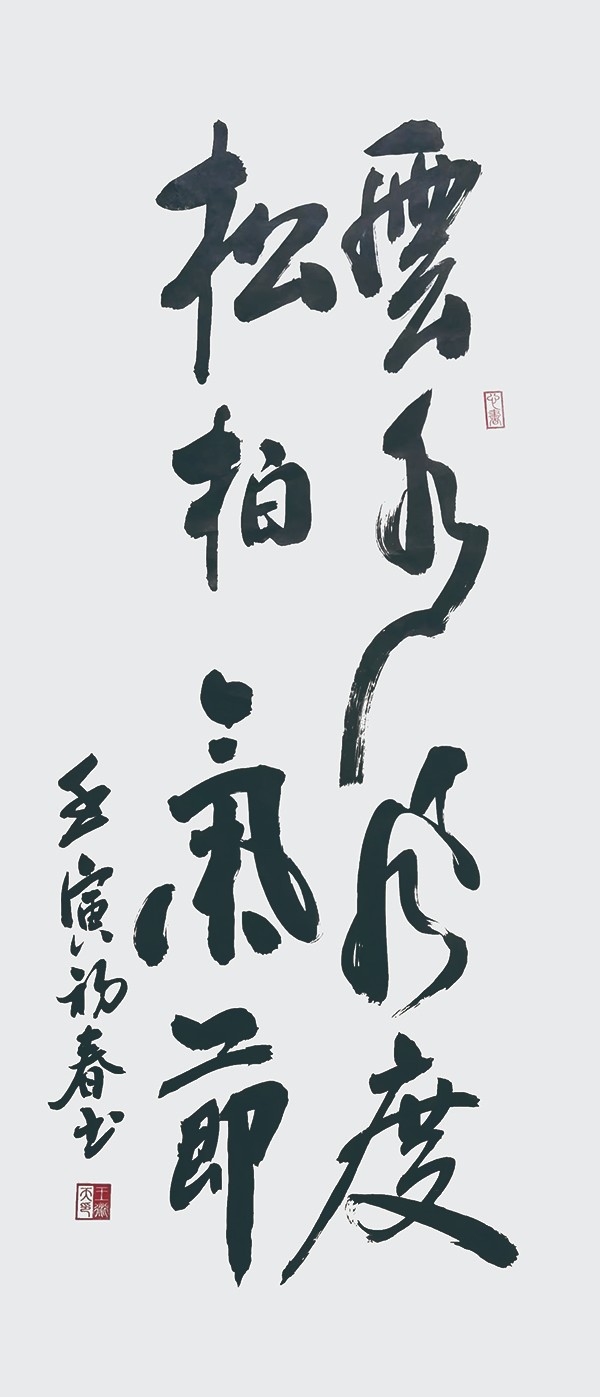 雲水風度
松柏氣節
壬寅初春书